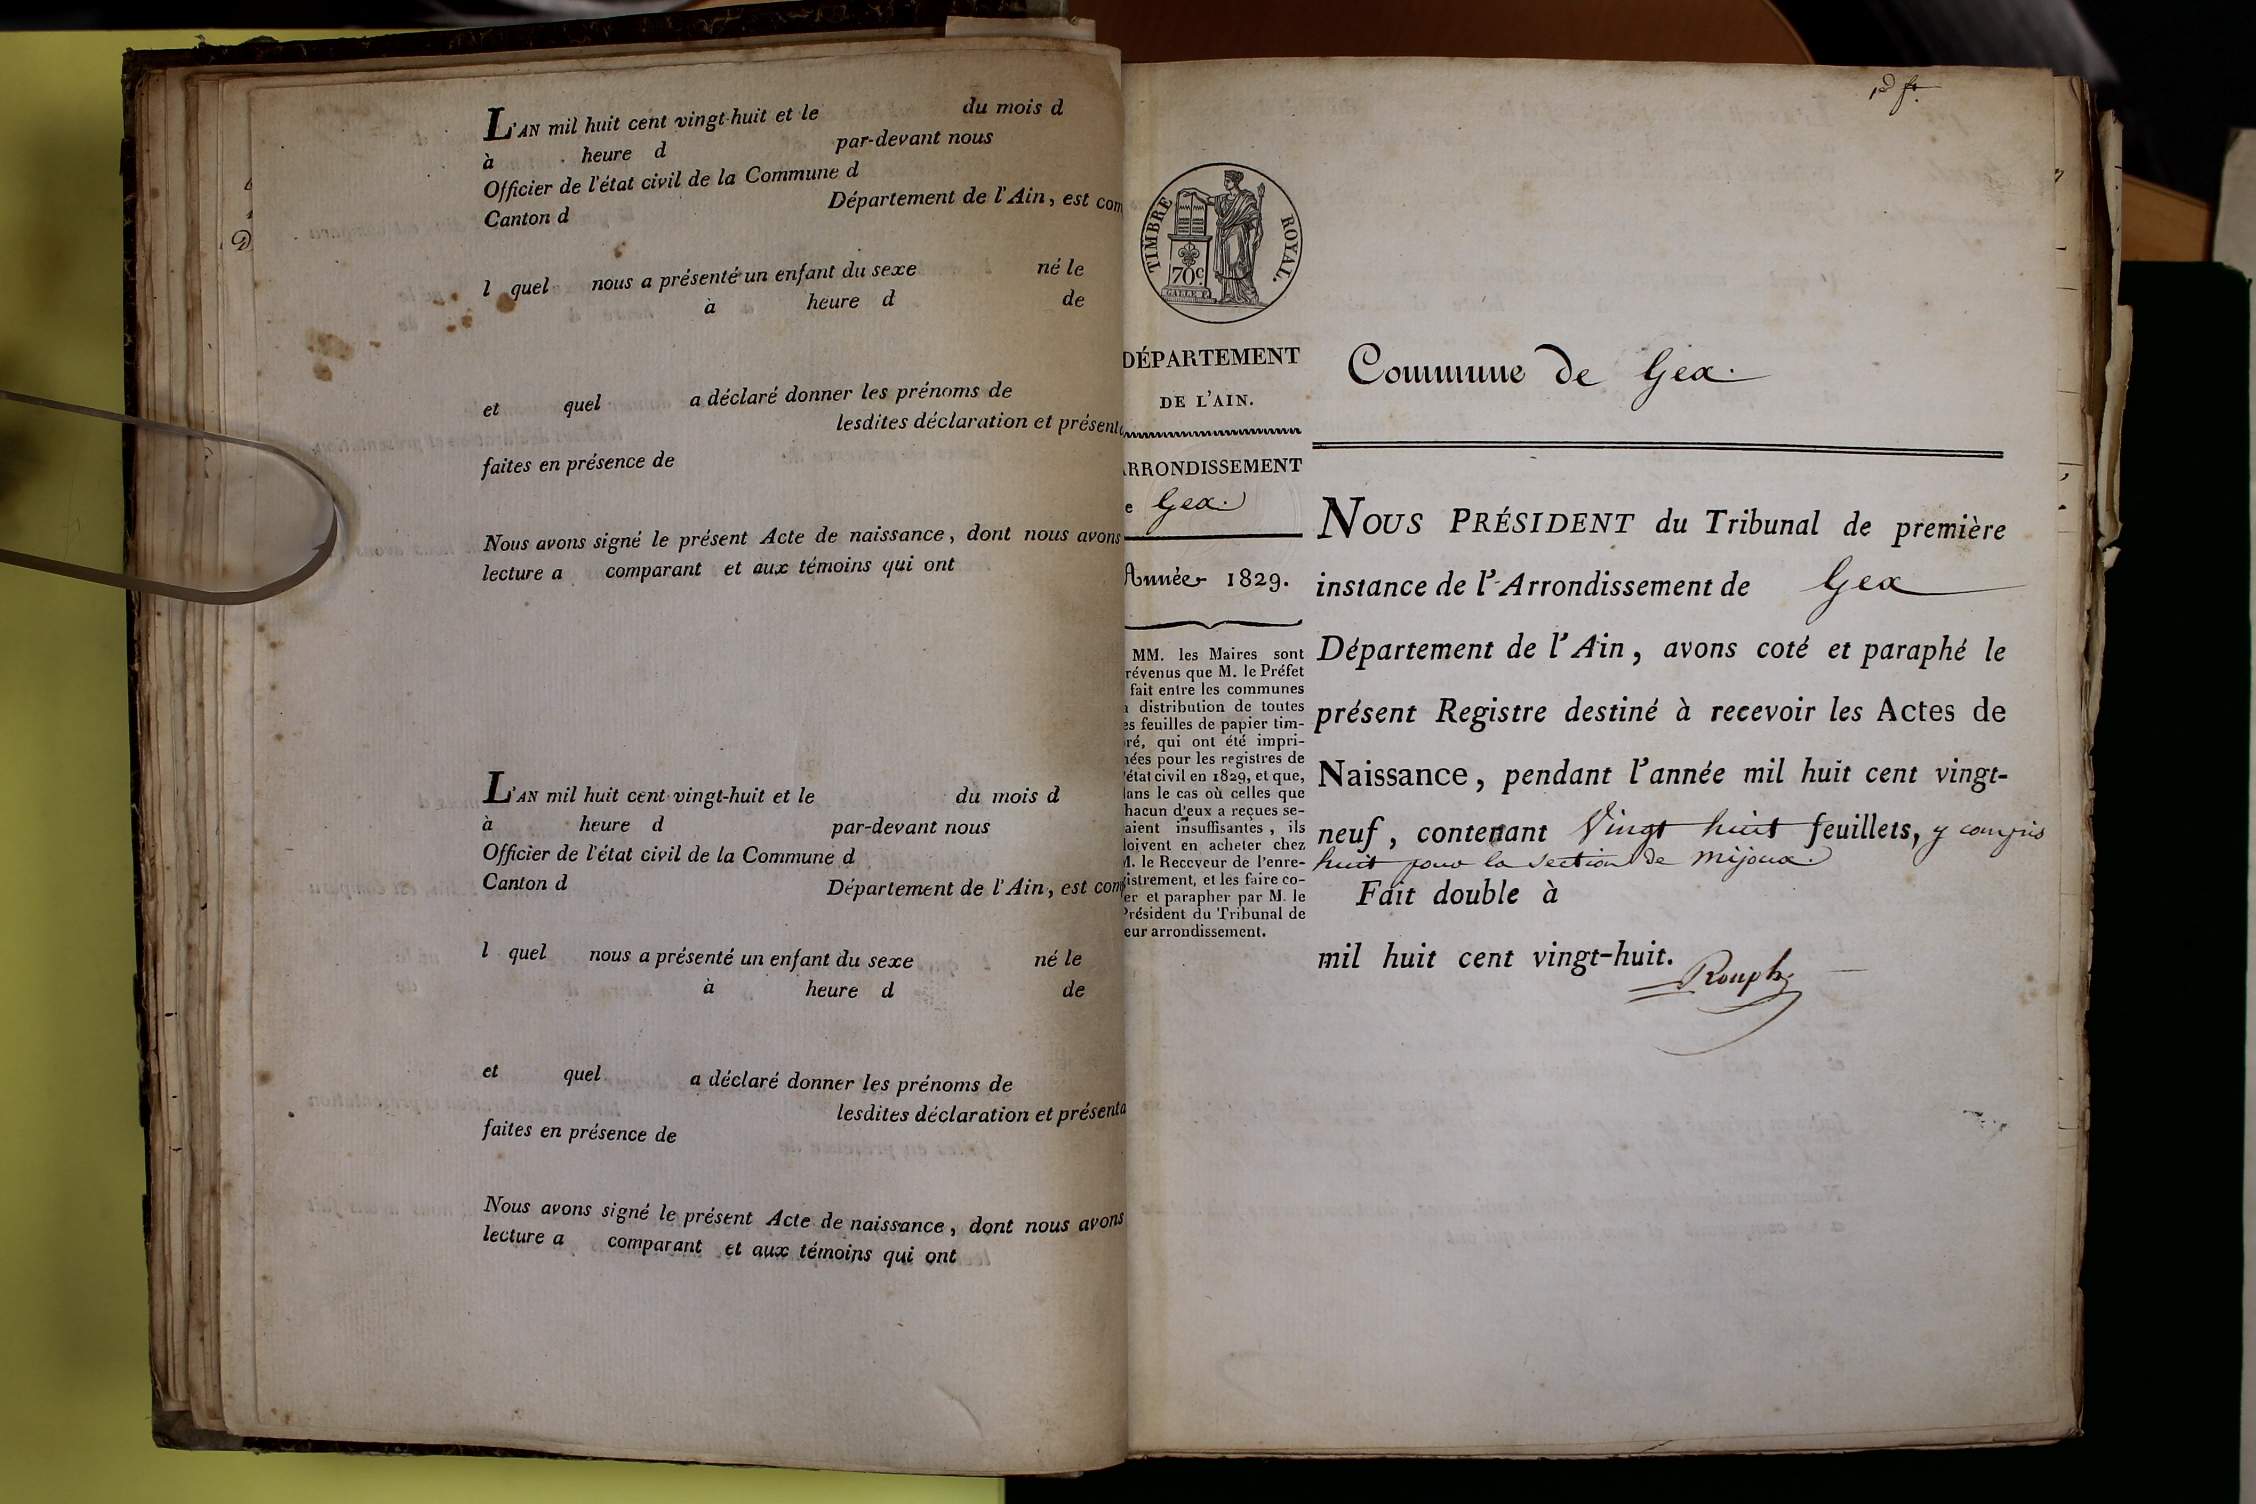 L'AN mil huit cent vingt-huit et le du mois d
à heure d par-devant nous
Officier de l'état civil de la Commune d
Canton d Département de l'Ain, est com
l quel nous a présenté un enfant du sexe né le
à heure d de
et quel a déclaré donner les prénoms de
lesdites déclaration et présenta
faites en présence de
Nous avons signé le présent Acte de naissance, dont nous avons
lecture a comparant et aux témoins qui ont
L'AN mil huit cent vingt-huit et le du mois d
à heure d par-devant nous
Officier de l'état civil de la Commune d
Canton d Département de l'Ain, est com
l quel nous a présenté un enfant du sexe né le
à heure d de
et quel a déclaré donner les prénoms de
lesdites déclaration et présenta
faites en présence de
Nous avons signé le présent Acte de naissance, dont nous avons
lecture a comparant et aux témoins qui ont
TIMBRE ROYAL.
70 c
DÉPARTEMENT
DE L'AIN.
RRONDISSEMENT
e Gex.
Année 1829.
MM. les Maires sont
révenus que M. le Préfet
fait entre les communes
a distribution de toutes
es feuilles de papier tim-
ré, qui ont été impri-
nées pour les registres de
'état civil en 1829, et que,
dans le cas où celles que
hacun d'eux a reçues se-
aient insuffisantes, ils
doivent en acheter chez
M. le Receveur de l'enre-
istrement, et les faire co-
er et parapher par M. le
Président du Tribunal de
eur arrondissement.
Commune de Gex.
NOUS PRÉSIDENT du Tribunal de première
instance de l'Arrondissement de Gex
Département de l'Ain, avons coté et paraphé le
présent Registre destiné à recevoir les Actes de
Naissance, pendant l'année mil huit cent vingt-
neuf, contenant Vingt huit feuillets, y compris
huit pour la section de mijoux.
Fait double à
mil huit cent vingt-huit.